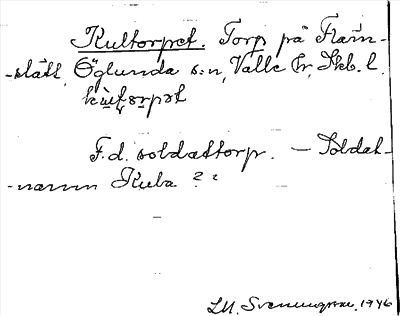 Kultorpet. Torp på Fläm-
-slätt, Öglunda s:n, Valle hr, Skb. l.
F. d. soldattorp. — Soldat-
-namn Kula ??
Svenungsson. 1946